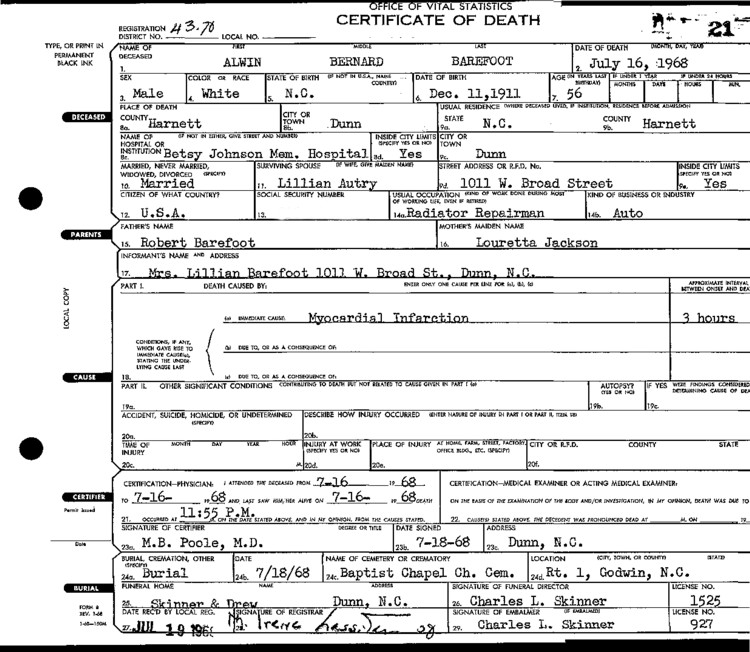 OFFICE OF VITAL STATISTICS
CERTIFICATE OF DEATH
REGISTRATION DISTRICT NO. 43-70 LOCAL NO.
21
TYPE, OR PRINT IN PERMANENT BLACK INK
NAME OF DECEASED FIRST MIDDLE LAST DATE OF DEATH (MONTH, DAY, YEAR)
1. ALWIN BERNARD BAREFOOT 2. July 16, 1968
SEX COLOR OR RACE STATE OF BIRTH (IF NOT IN U.S.A., NAME COUNTRY) DATE OF BIRTH AGE (IN YEARS LAST BIRTHDAY) IF UNDER 1 YEAR IF UNDER 24 HOURS
MONTHS DAYS HOURS MIN.
3. Male 4. White 5. N.C. 6. Dec. 11,1911 7. 56
DECEASED
PLACE OF DEATH USUAL RESIDENCE (WHERE DECEASED LIVED, IF INSTITUTION, RESIDENCE BEFORE ADMISSION)
COUNTY CITY OR TOWN STATE COUNTY
8a. Harnett 8b. Dunn 9a. N.C. 9b. Harnett
NAME OF HOSPITAL OR INSTITUTION (IF NOT IN EITHER, GIVE STREET AND NUMBER) INSIDE CITY LIMITS (SPECIFY YES OR NO) CITY OR TOWN
8c. Betsy Johnson Mem. Hospital 8d. Yes 9c. Dunn
MARRIED, NEVER MARRIED, WIDOWED, DIVORCED (SPECIFY) SURVIVING SPOUSE (IF WIFE, GIVE MAIDEN NAME) STREET ADDRESS OR R.F.D. No. INSIDE CITY LIMITS (SPECIFY YES OR NO)
10. Married 11. Lillian Autry 9d. 1011 W. Broad Street 9e. Yes
CITIZEN OF WHAT COUNTRY? SOCIAL SECURITY NUMBER USUAL OCCUPATION (KIND OF WORK DONE DURING MOST OF WORKING LIFE, EVEN IF RETIRED) KIND OF BUSINESS OR INDUSTRY
12. U.S.A. 13. 14a. Radiator Repairman 14b. Auto
PARENTS
FATHER'S NAME MOTHER'S MAIDEN NAME
15. Robert Barefoot 16. Louretta Jackson
INFORMANT'S NAME AND ADDRESS
17. Mrs. Lillian Barefoot 1011 W. Broad St., Dunn, N.C.
PART I. DEATH CAUSED BY: ENTER ONLY ONE CAUSE PER LINE FOR (a), (b), (c) APPROXIMATE INTERVAL BETWEEN ONSET AND DEA
LOCAL COPY
(a) IMMEDIATE CAUSE: Myocardial Infarction 3 hours
CONDITIONS, IF ANY, WHICH GAVE RISE TO IMMEDIATE CAUSE(a), STATING THE UNDERLYING CAUSE LAST
(b) DUE TO, OR AS A CONSEQUENCE OF:
CAUSE
18. (c) DUE TO, OR AS A CONSEQUENCE OF:
PART II. OTHER SIGNIFICANT CONDITIONS CONTRIBUTING TO DEATH BUT NOT RELATED TO CAUSE GIVEN IN PART I (a) AUTOPSY? (YES OR NO) IF YES WERE FINDINGS CONSIDERED DETERMINING CAUSE OF DEA
19a. 19b. 19c.
ACCIDENT, SUICIDE, HOMICIDE, OR UNDETERMINED (SPECIFY) DESCRIBE HOW INJURY OCCURRED (ENTER NATURE OF INJURY IN PART I OR PART II, ITEM 18)
20a. 20b.
TIME OF INJURY MONTH DAY YEAR HOUR INJURY AT WORK (SPECIFY YES OR NO) PLACE OF INJURY AT HOME, FARM, STREET, FACTORY, OFFICE BLDG., ETC. (SPECIFY) CITY OR R.F.D. COUNTY STATE
20c. M. 20d. 20e. 20f.
CERTIFIER
Permit Issued
Date
CERTIFICATION—PHYSICIAN: I ATTENDED THE DECEASED FROM 7-16 19 68 CERTIFICATION—MEDICAL EXAMINER OR ACTING MEDICAL EXAMINER:
TO 7-16- 19 68 AND LAST SAW HIM/HER ALIVE ON 7-16- 19 68 DEATH ON THE BASIS OF THE EXAMINATION OF THE BODY AND/OR INVESTIGATION, IN MY OPINION, DEATH WAS DUE TO
21. OCCURRED AT 11:55 P.M. M. ON THE DATE STATED ABOVE, AND IN MY OPINION, FROM THE CAUSES STATED. 22. CAUSE(S) STATED ABOVE. THE DECEDENT WAS PRONOUNCED DEAD AT M. ON 19
SIGNATURE OF CERTIFIER DEGREE OR TITLE DATE SIGNED ADDRESS
23a. M.B. Poole, M.D. 23b. 7-18-68 23c. Dunn, N.C.
BURIAL, CREMATION, OTHER (SPECIFY) DATE NAME OF CEMETERY OR CREMATORY LOCATION (CITY, TOWN, OR COUNTY) (STATE)
24a. Burial 24b. 7/18/68 24c. Baptist Chapel Ch. Cem. 24d. Rt. 1, Godwin, N.C.
BURIAL
FUNERAL HOME NAME ADDRESS SIGNATURE OF FUNERAL DIRECTOR LICENSE NO.
25. Skinner & Drew Dunn, N.C. 26. Charles L. Skinner 1525
FORM 8
REV. 1-68
DATE REC'D BY LOCAL REG. SIGNATURE OF REGISTRAR SIGNATURE OF EMBALMER (IF EMBALMED) LICENSE NO.
27. JUL 19 196 28. 29. Charles L. Skinner 927